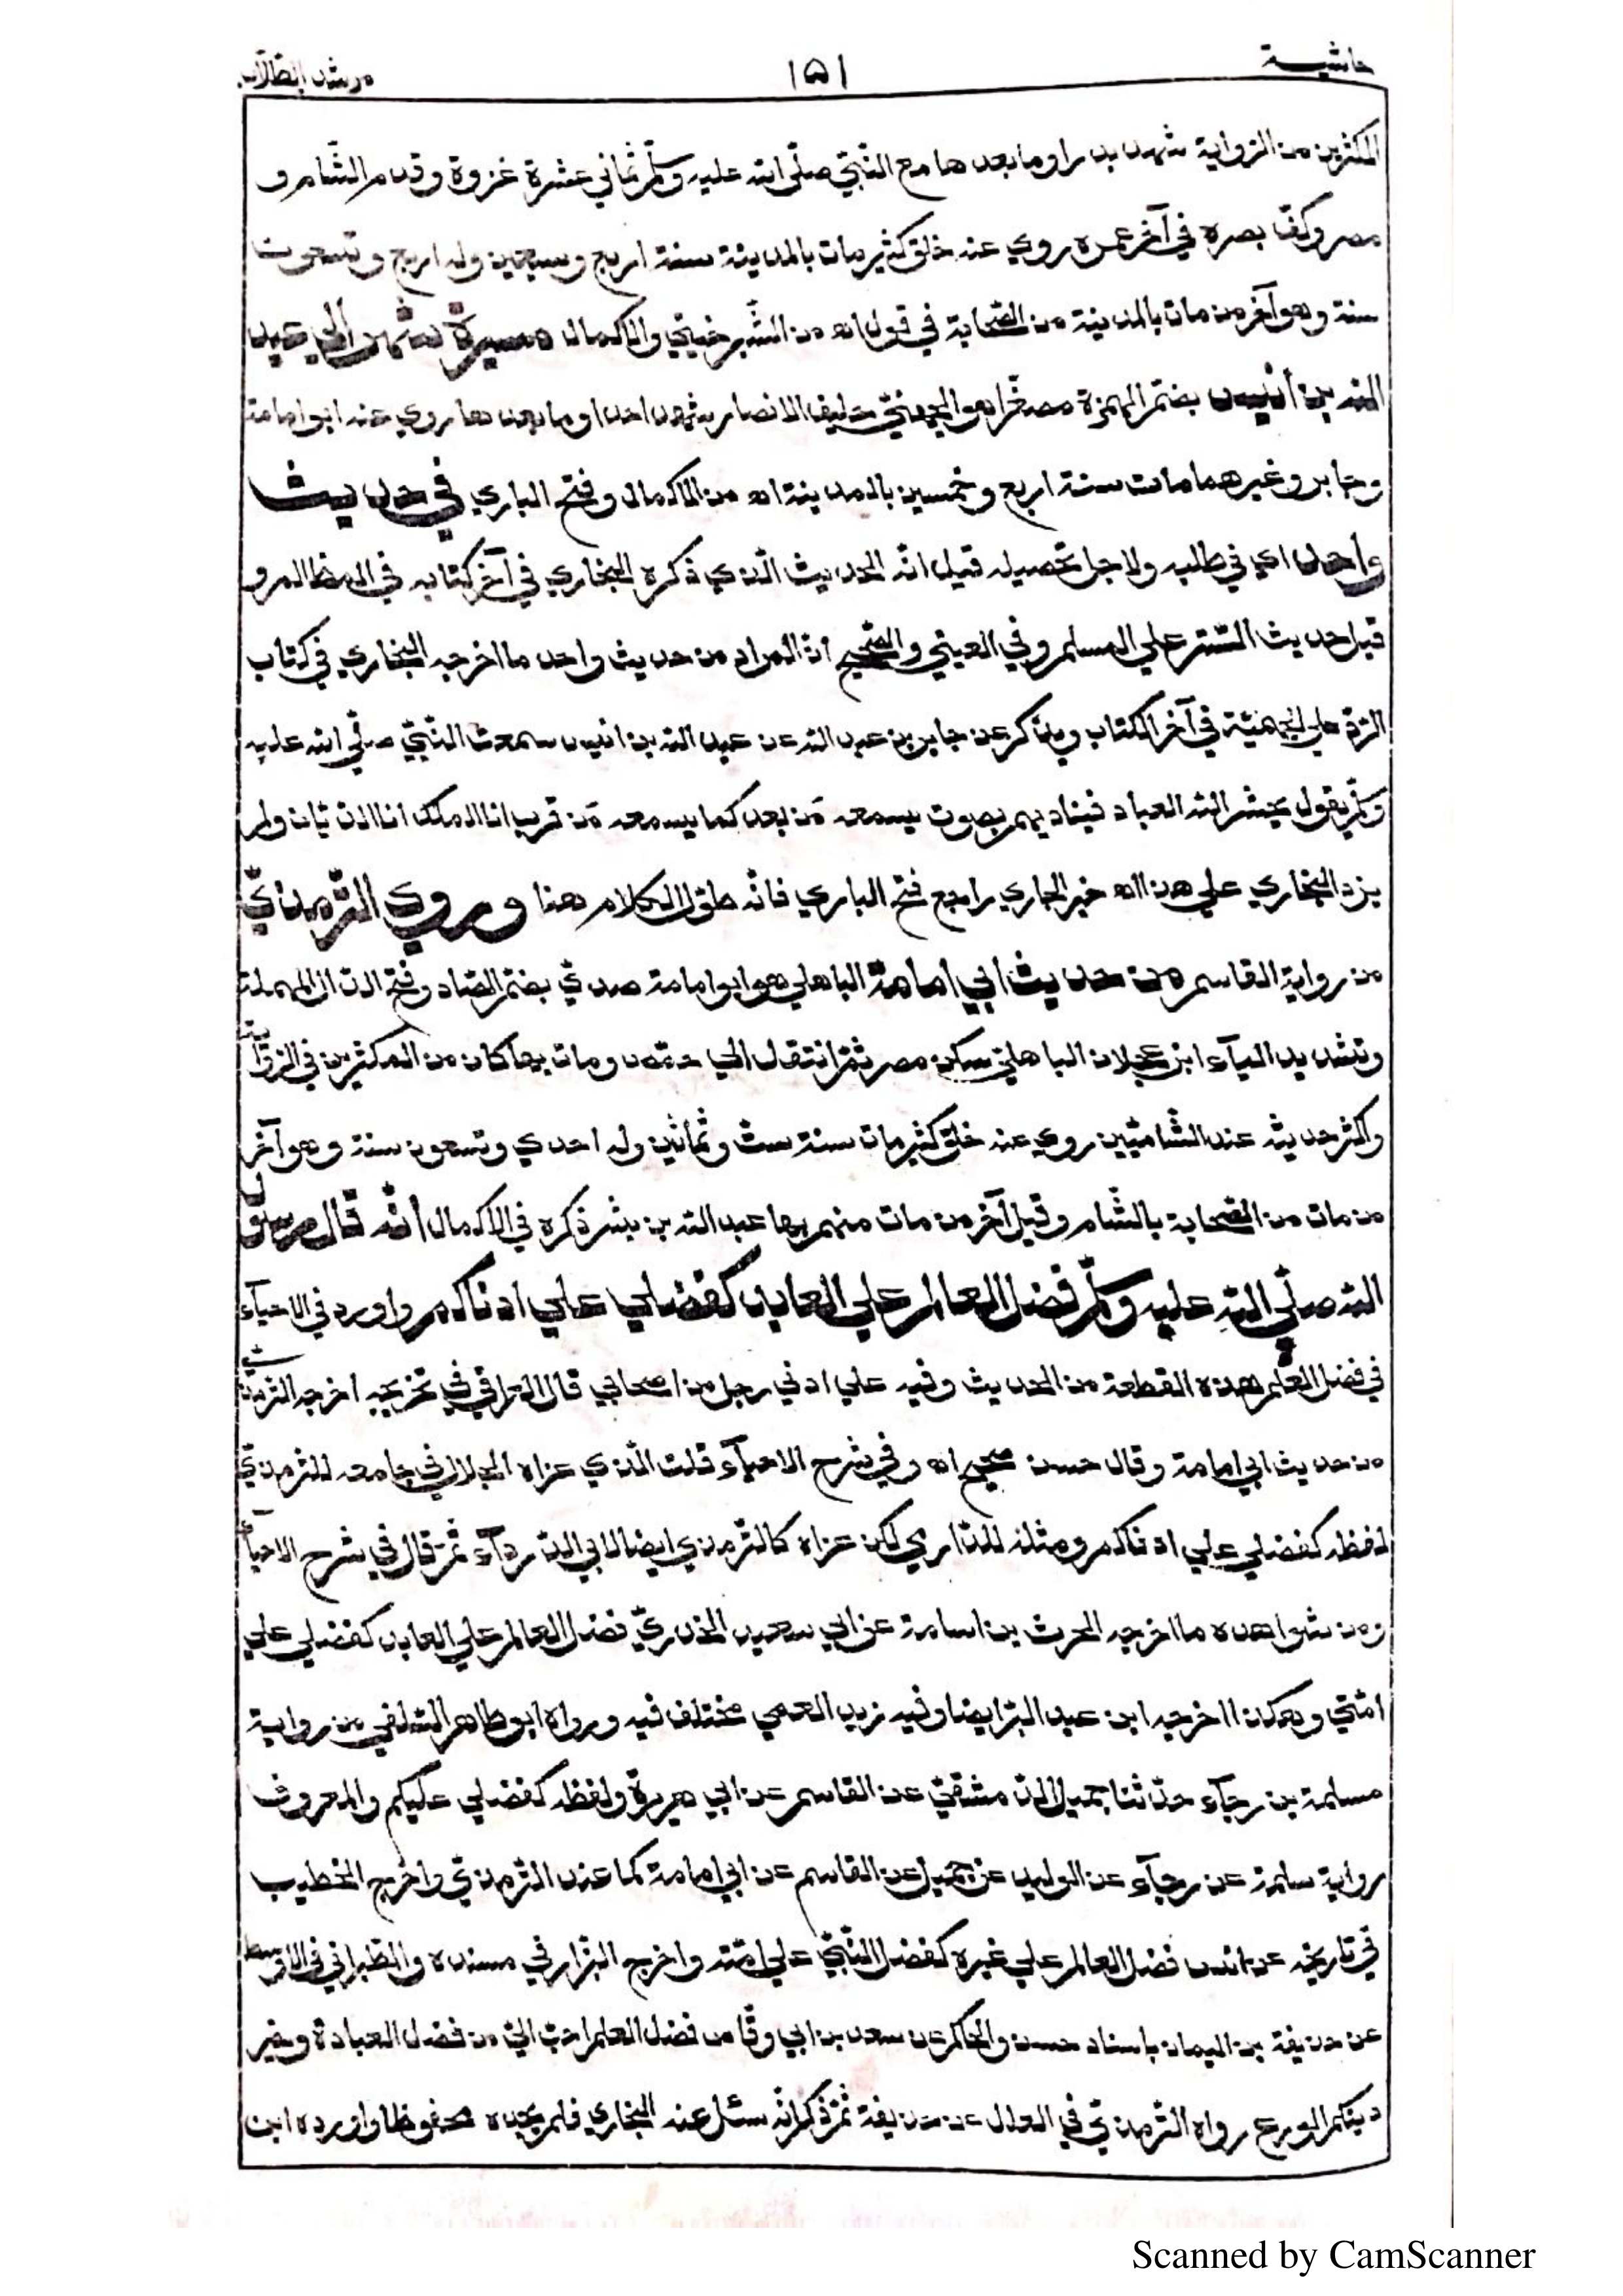 حاشية ١٥١ مرشد الطلاب
المكثرين من الرواية شهد بدرا وما بعدها مع النبيّ صلّى الله عليه وسلّم ثماني عشرة غزوة وقدم الشّام و
مصر وكفّ بصره في آخر عمره روي عنه خلق كثير مات بالمدينة سنة اربع وسبعين وله اربع وتسعون
سنة وهو آخر من مات بالمدينة من الصّحابة في قول اه من الشّبرخيتي والاكمال مسيرة شهر الي عبد
الله بن أنيس بضمّ الهمزة مصغّرا هو الجهنيّ حليف الانصار شهد احدا وما بعدها روي عنه ابو امامة
وجابر وغيرهما مات سنة اربع وخمسين بالمدينة اه من الاكمال وفتح الباري في حديث
واحد اي في طلبه ولاجل تحصيله قيل انّه الحديث الّذي ذكره البخاري في آخر كتابه في المظالم و
قبل حديث السّتر علي المسلم وفي العيني والصّحيح انّ المراد من حديث واحد ما اخرجه البخاري في كتاب
الرّدّ علي الجهميّة في آخر الكتاب ويذكر عن جابر بن عبد الله عن عبد الله بن انيس سمعت النّبيّ صلّي الله عليه
وسلّم يقول يحشر الله العباد فيناديهم بصوت يسمعه مَن بعد كما يسمعه مَن قرب انا الملك انا الديّان ولم
يزد البخاري علي هذا اه خير الجاري راجع فتح الباري فانّه طوّل الكلام هنا وروي التّرمذيّ
من رواية القاسم من حديث ابي امامة الباهلي هو ابو امامة صديّ بضمّ الصّاد وفتح الدّال المهملة
وتشديد اليآء ابن عجلان الباهليّ سكن مصر ثمّ انتقل الي حمص ومات بها كان من المكثرين في الرّواية
واكثر حديثه عند الشّاميّين روي عنه خلق كثير مات سنة ستّ وثمانين وله احدي وتسعون سنة وهو آخر
من مات من الصّحابة بالشّام وقيل آخر من مات منهم بها عبد الله بن بشر ذكره في الاكمال أنّه قال رسول
الله صلّي الله عليه وسلّم فضل العالم علي العابد كفضلي علي ادناكم واورد في الاحيآء
في فضل العلم هذه القطعة من الحديث وفيه علي ادني رجل من اصحابي قال العراقي في تخريجه اخرجه التّرمذيّ
من حديث ابي امامة وقال حسن صحيح اه وفي شرح الاحيآء قلت الّذي عزاه الجلال في جامعه للترمذيّ
لفظه كفضلي علي ادناكم ومثله للدّارمي لكن عزاه كالتّرمذي ايضا لابي الدّردآء ثمّ قال في شرح الاحيآء
ومن شواهده ما اخرجه الحرث بن اسامة عن ابي سعيد الخدريّ فضل العالم علي العابد كفضلي علي
امّتي وهكذا اخرجه ابن عبد البرّ ايضا وفيه زيد العمي مختلف فيه ورواه ابو طاهر السّلفي من رواية
مسلمة بن رجآء حدّثنا جميل الدّمشقيّ عن القاسم عن ابي هريرة ولفظه كفضلي عليكم والمعروف
رواية سلمة عن رجآء عن الوليد عن جميل عن القاسم عن ابي امامة كما عند التّرمذيّ واخرج الخطيب
في تاريخه عن انس فضل العالم علي غيره كفضل النّبيّ علي امّته واخرج البزّار في مسنده والطّبراني في الاوسط
عن حذيفة بن اليمان باسناد حسن والحاكم عن سعد بن ابي وقّاص فضل العلم احبّ اليّ من فضل العبادة وخير
دينكم الورع رواه التّرمذيّ في العلل عن حذيفة ثمّ ذكر انّه سئل عنه البخاري فلم يجده محفوظا واورده ابن
Scanned by CamScanner